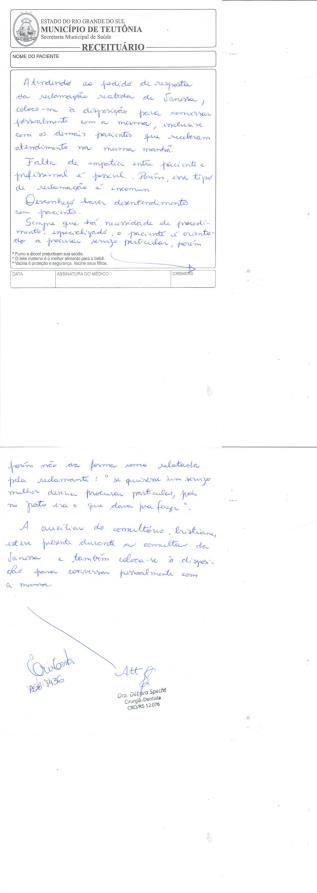 ESTADO DO RIO GRANDE DO SUL
MUNICÍPIO DE TEUTÔNIA
Secretaria Municipal de Saúde
RECEITUÁRIO
NOME DO PACIENTE
Atendendo ao pedido de resposta
da reclamação realizada de Vanessa,
coloco-me à disposição para conversar
pessoalmente com a mesma, inclusive
com os demais pacientes que receberam
atendimento na mesma manhã.
Falta de empatia entre paciente e
profissional é possível. Porém, esse tipo
de reclamação é incomum.
Desconheço haver desentendimento
com paciente.
Sempre que há necessidade de procedi-
mento especializado, o paciente é orienta-
do a procurar serviço particular, porém
* Fumo e álcool prejudicam sua saúde.
* O leite materno é o melhor alimento para o bebê.
* Vacina é proteção e segurança. Vacine seus filhos.
DATA
ASSINATURA DO MÉDICO
CREMERS
porém não da forma como relatada
pela reclamante: " se quisesse um serviço
melhor deveria procurar particular, pois
no posto era o que dava pra fazer".
A auxiliar do consultório, Cristiane,
esteve presente durante a consulta da
Vanessa e também coloca-se à dispos-
ição para conversar pessoalmente com
a mesma
Att
Dra. Débora Specht
Cirurgiã-Dentista
CRO/RS 12.076